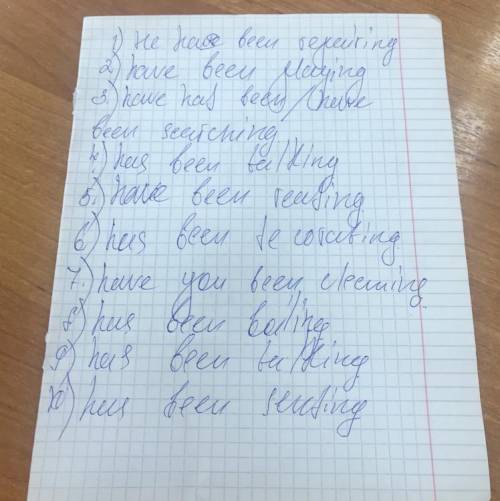 1) He has been repairing
2) have been playing
3.) have has been / have
been searching
4) has been talking
5.) have been reading
6) has been decorating
7.) have you been cleaning
8) has been boiling
9) has been talking
10) has been sending